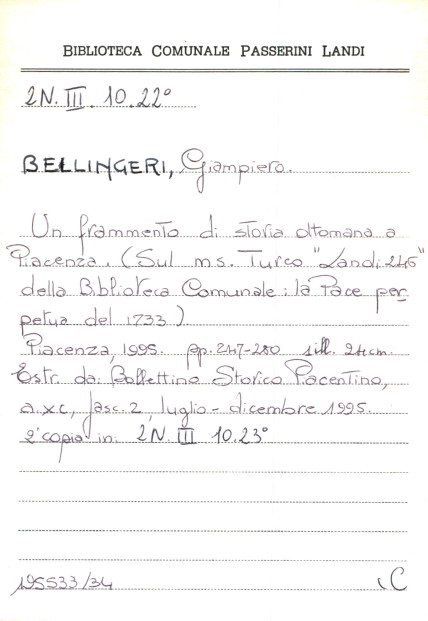 BIBLIOTECA COMUNALE PASSERINI LANDI
2N. III. 10.22°
BELLINGERI, Giampiero.
Un frammento di storia ottomana a
Piacenza. (Sul ms. Turco "Landi 246"
della Biblioteca Comunale: la Pace per-
petua del 1733)
Piacenza, 1995. pp. 247-280 ill. 24cm.
Estr. da: Bollettino Storico Piacentino,
a. xc, fasc. 2, luglio - dicembre 1995.
2ª copia in: 2N. III 10.23°
195533/34
C